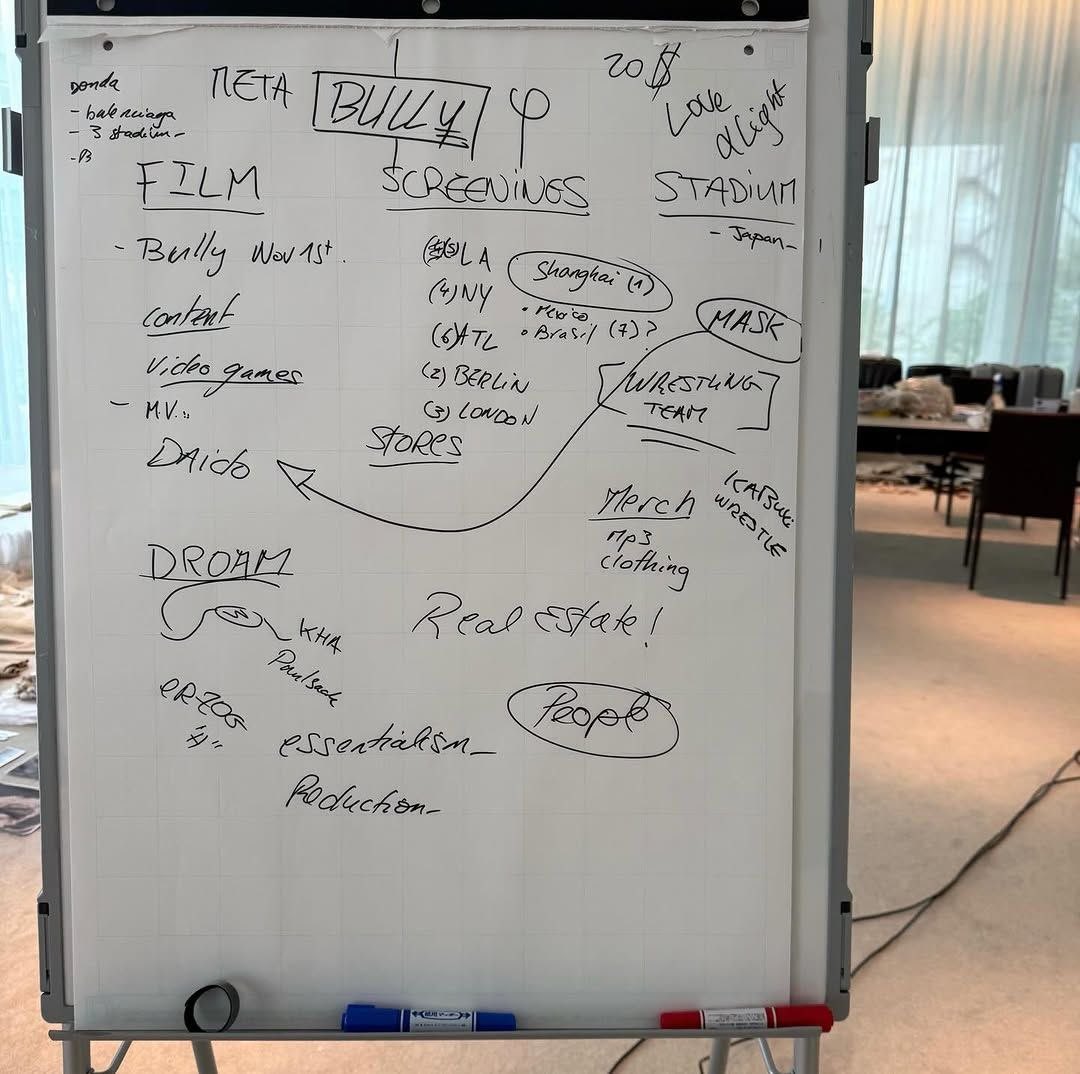 Donda
- balenciaga
- 3 stadium -
META
BULLY
φ
20$
Love
&Light
FILM
- Bully Nov 1st.
content
Video games
- M.V.
DAido
SCREENINGS
LA
(4) NY
(6) ATL
(2) BERLIN
(3) LONDON
Shanghai (1)
• Mexico
• Brasil (7) ?
STORES
STADIUM
- Japan -
MASK
[WRESTLING
TEAM]
KABUKI
WRESTLE
Merch
Mp3
clothing
DROAM
KHA
Real Estate!
People
essentialism -
Reduction -